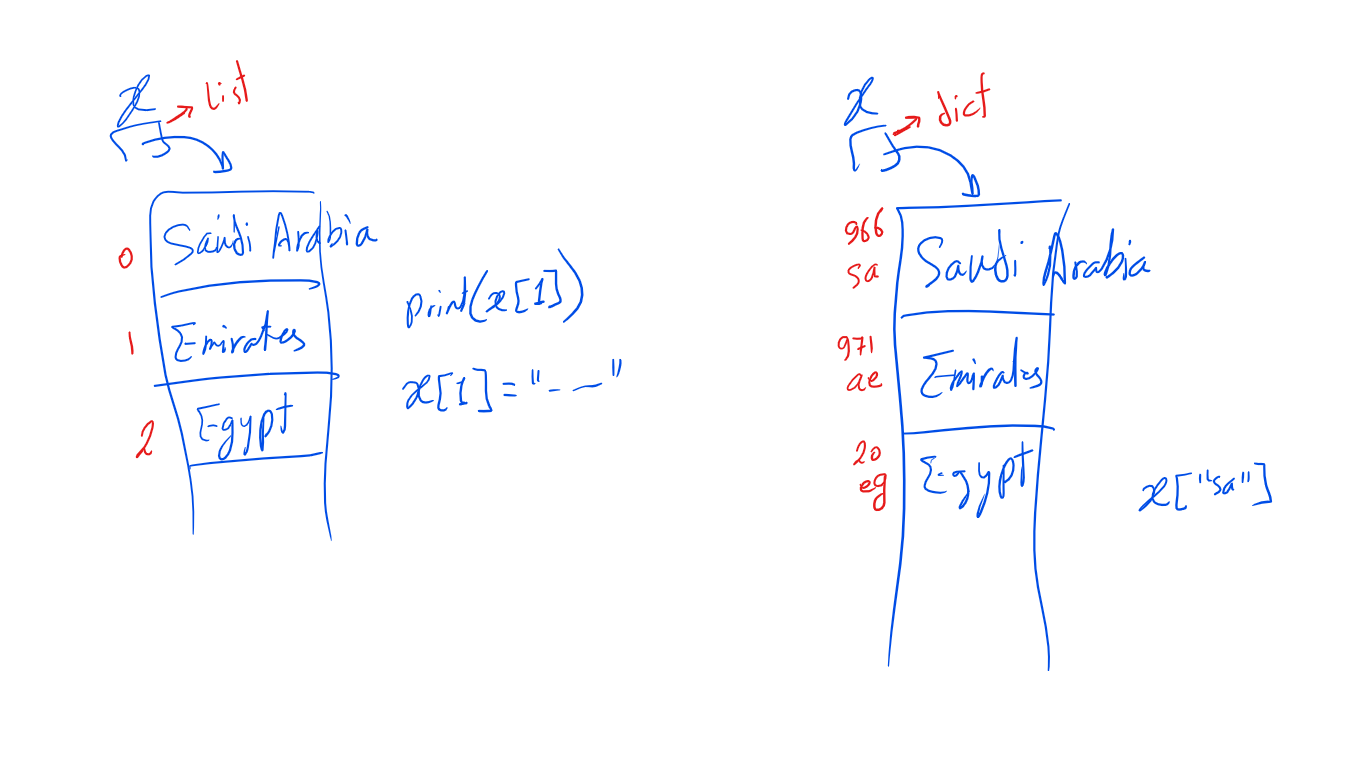 x
list
0
Saudi Arabia
1
Emirates
2
Egypt
print(x[1])
x[1]="- —"
x
dict
966
sa
Saudi Arabia
971
ae
Emirates
20
eg
Egypt
x["sa"]